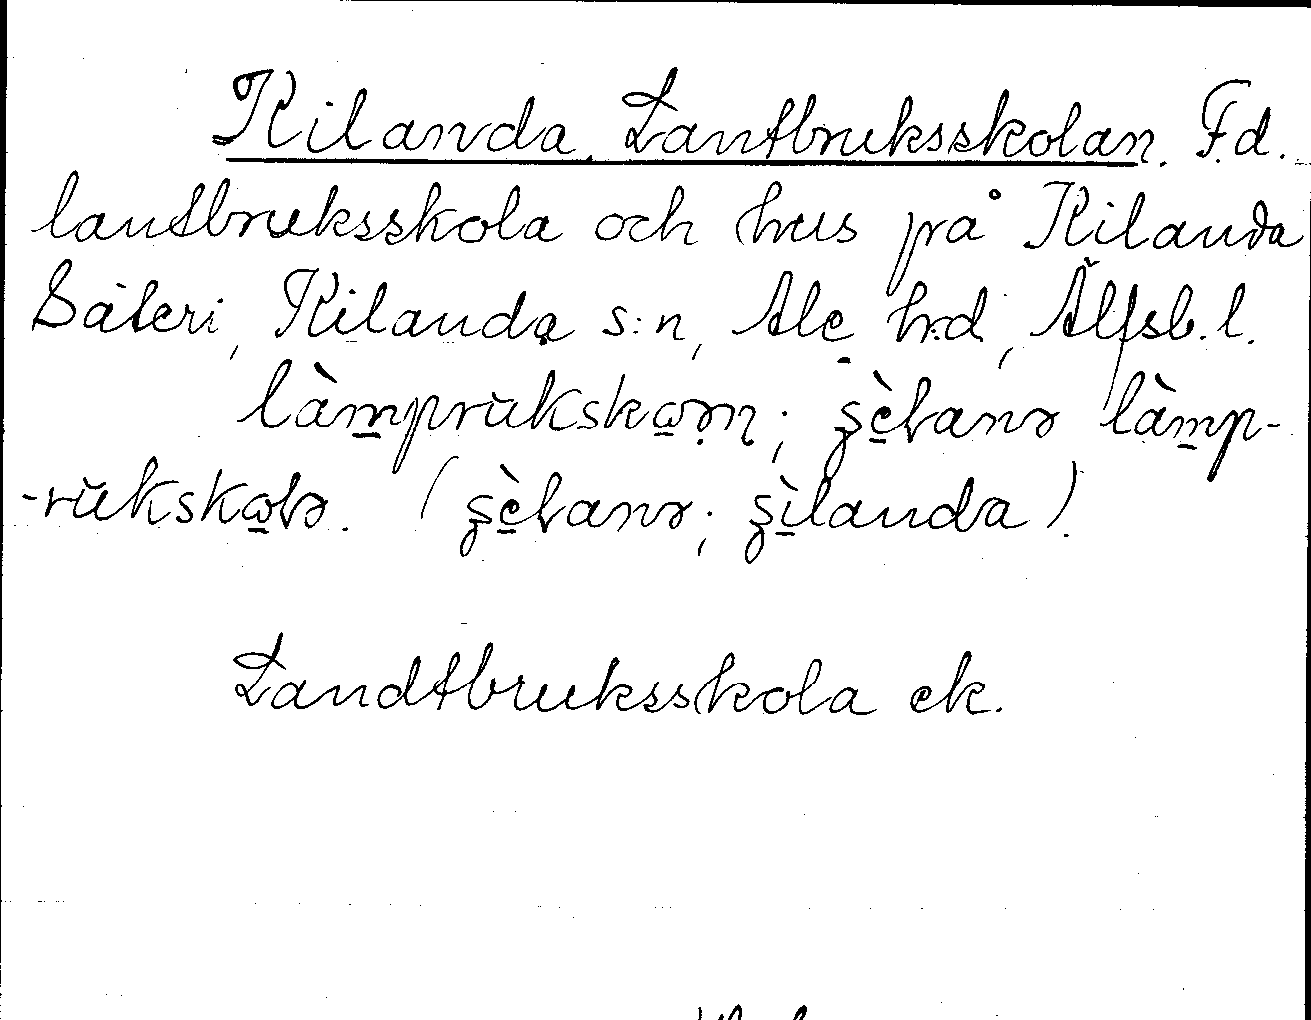 Kilanda. Lantbruksskolan. F.d.
lantbruksskola och hus på Kilanda
Säteri, Kilanda s:n, Ale h:d, Älfsb. l.
làmprŭkskωəņ; şèɫanə làmp-
-rŭkskωɫə. (şèɫanə; şìlanda).
Landtbruksskola ek.